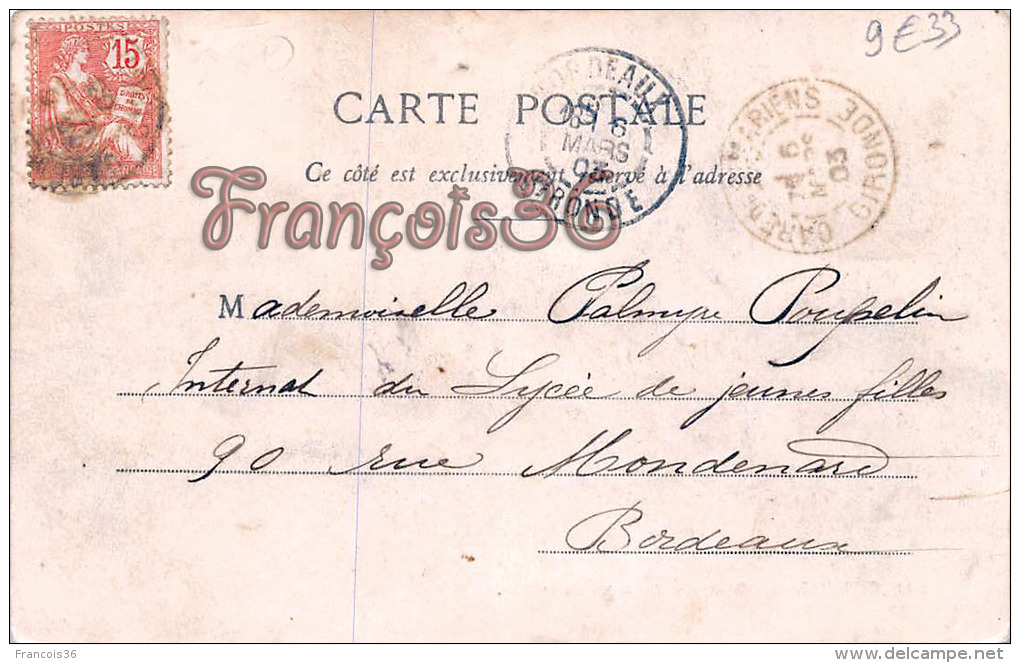 POSTES
15
DROITS DE L'HOMME
9 € 33
CARTE POSTALE
BORDEAUX
6
MARS
03
GIRONDE
GARE D
GIRONDE
6
03
Ce côté est exclusivement réservé à l'adresse
François36
Mademoiselle Palmyre Poupelin
Internat du Lycée de jeunes filles
90 rue Mondenard
Bordeaux
Francois36
www.delcampe.net